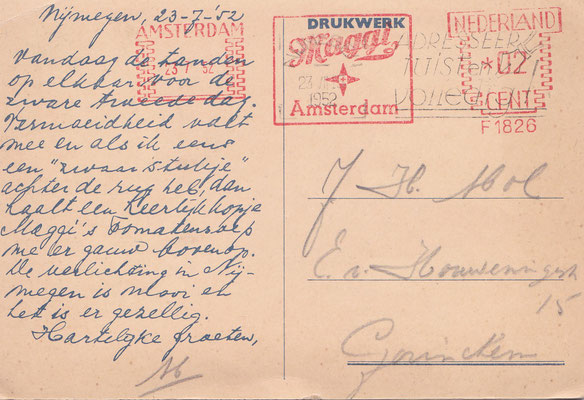 Nijmegen, 23-7-'52
Vandaag de tanden
op elkaar voor de
zware tweede dag.
Vermoeidheid valt
mee en als ik eens
een "zwaar stukje"
achter de rug heb, dan
haalt een heerlijk kopje
Maggi's Tomatensoep
me er gauw bovenop.
De verlichting in Nij-
megen is mooi en
het is er gezellig.
Hartelijke groeten,
AMSTERDAM
23.7.52
DRUKWERK
Maggi
23.
1952
Amsterdam
ADRESSEER
JUIST en
volledig
NEDERLAND
*02
CENT
F1826
J H. Mol
E. v. Houweningestr
15
Gorinchem